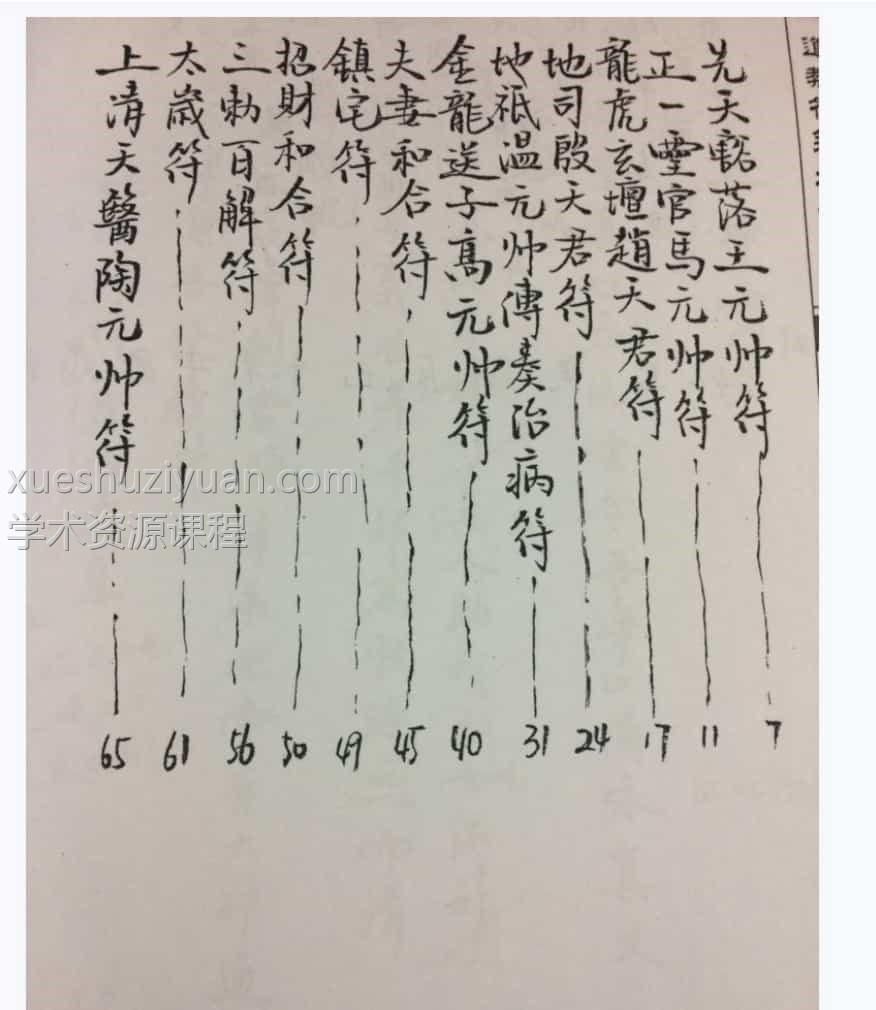 先天豁落王元帅符 7
正一靈官馬元帅符 11
龍虎玄壇趙天君符 17
地司殷天君符 24
地祇温元帅傳奏治病符 31
金龍送子高元帅符 40
夫妻和合符 45
鎮宅符 49
招財和合符 50
三勅百解符 56
太歲符 61
上清天醫陶元帅符 65
xueshuziyuan.com
学术资源课程